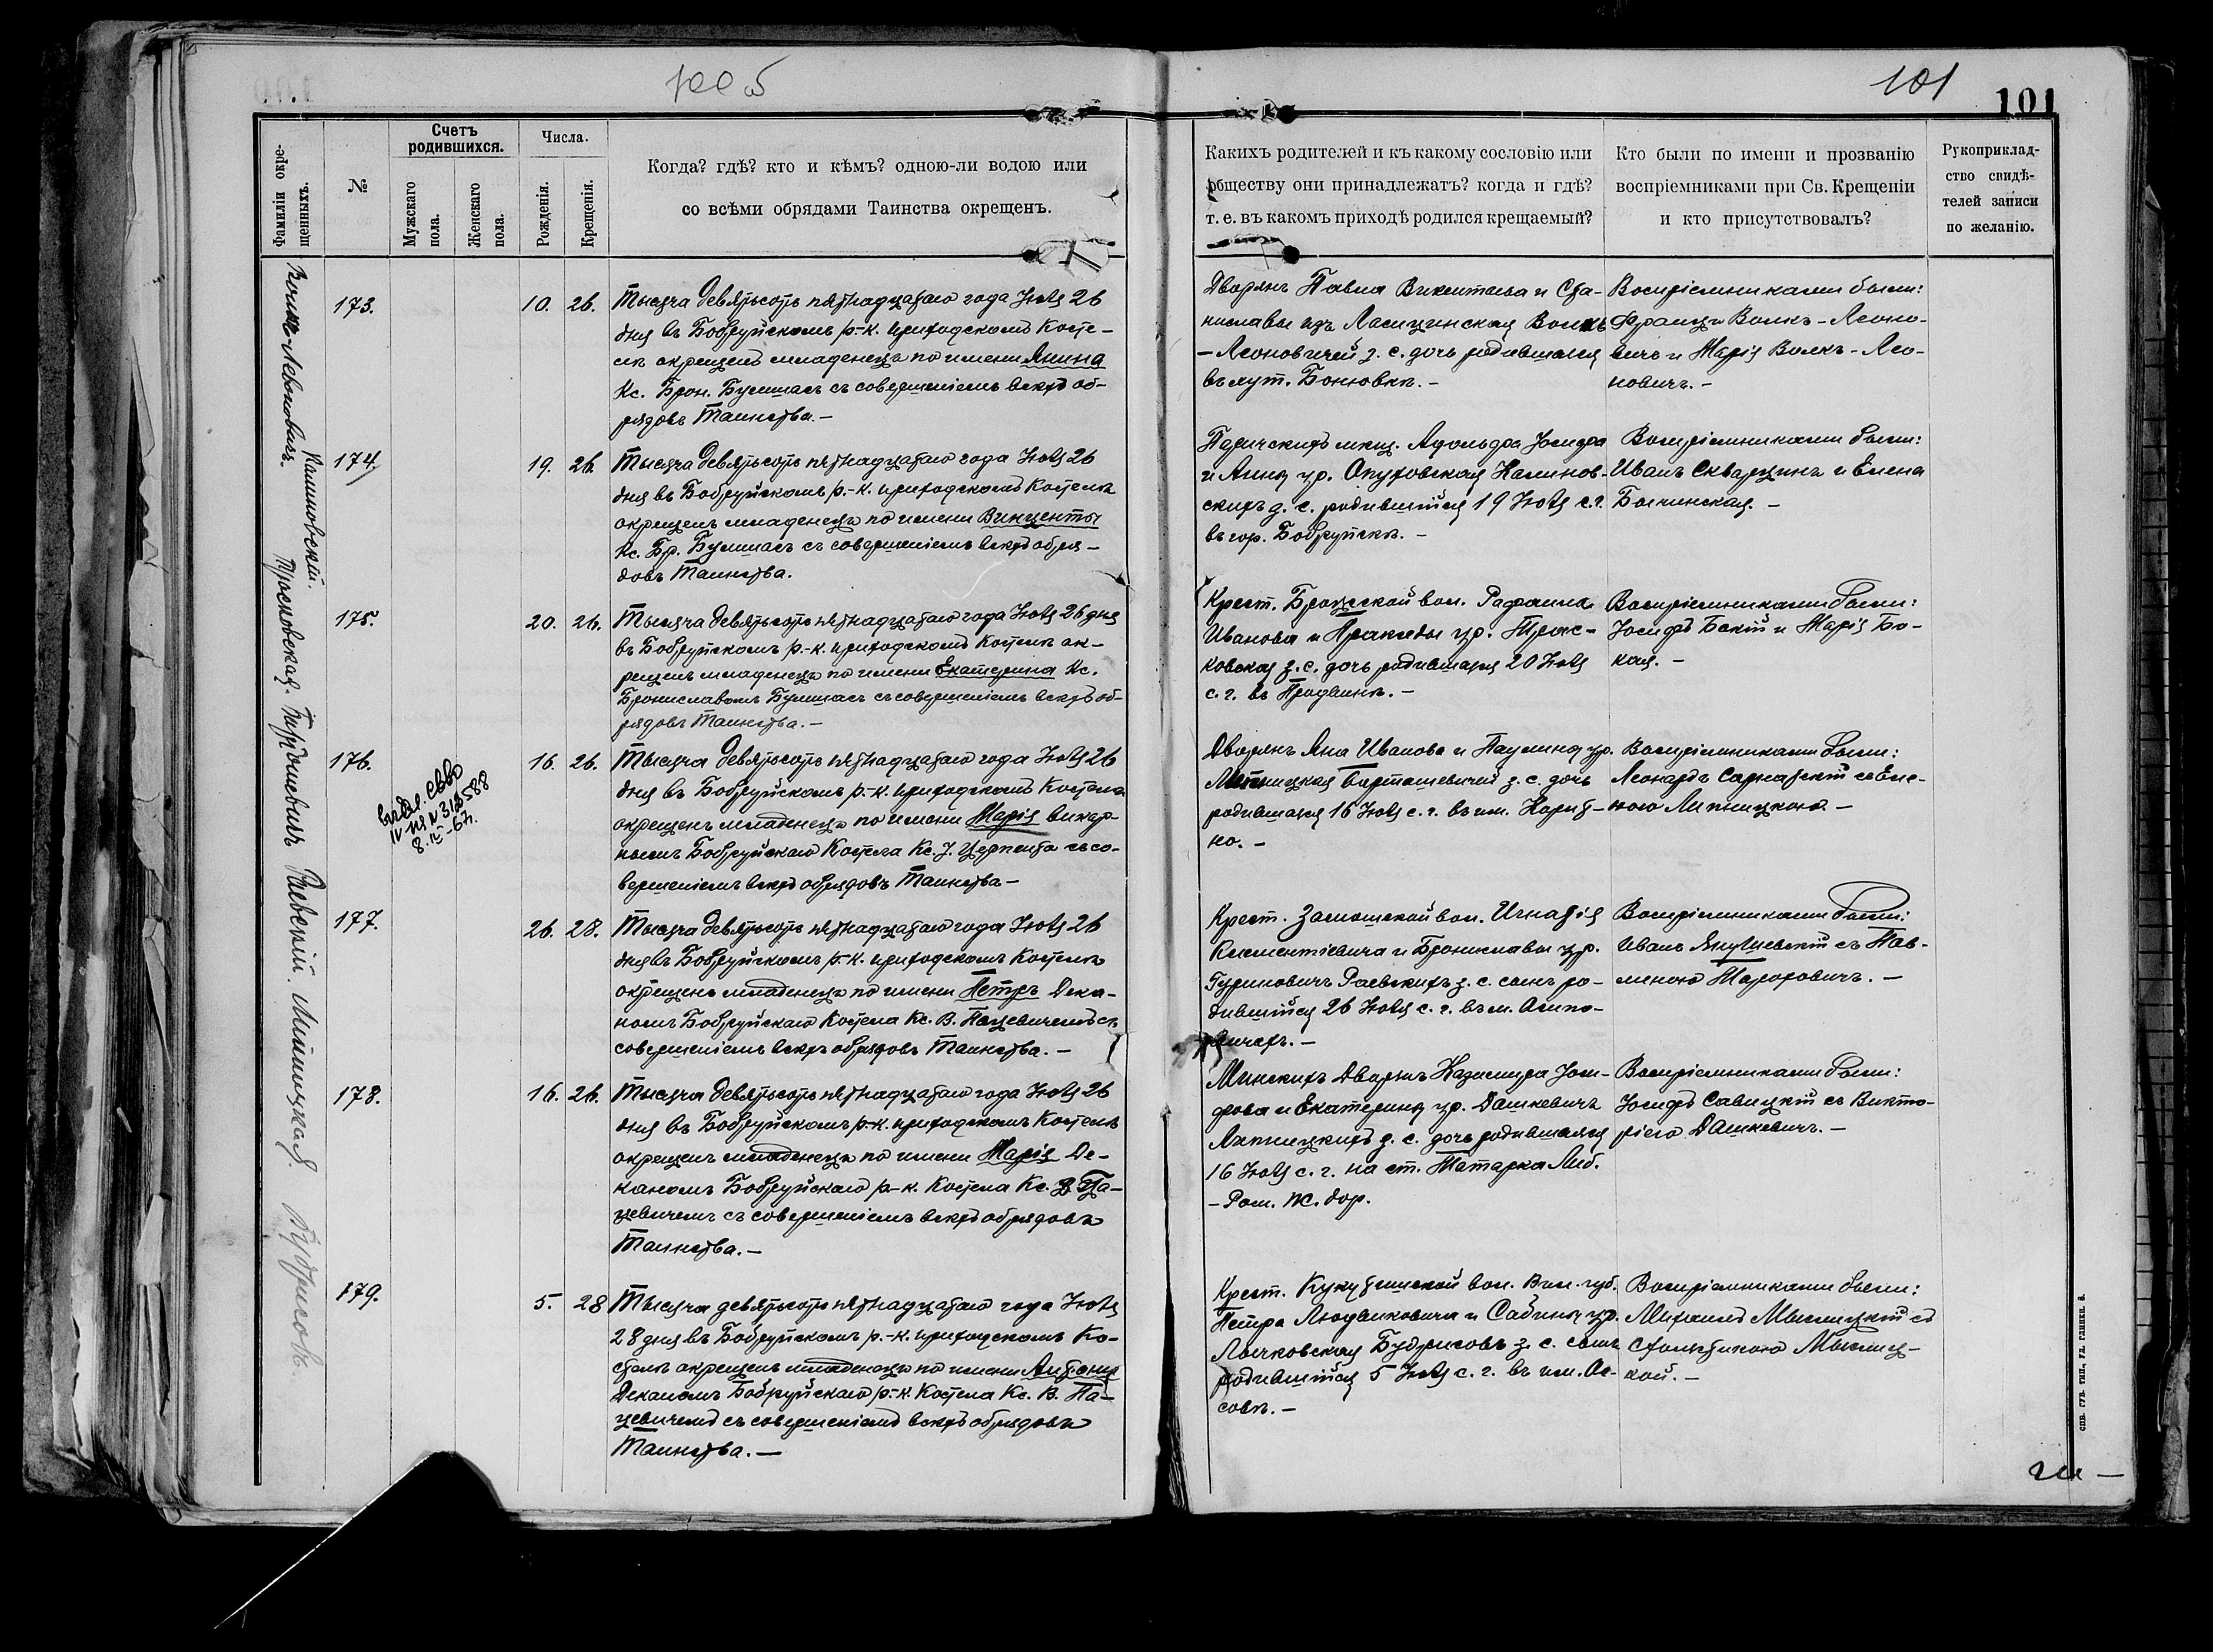 100 б
101
101
Фамиліи окре-
щенныхъ.
№
Счетъ
родившихся.
Мужскаго
пола.
Женскаго
пола.
Числа.
Рожденія.
Крещенія.
Когда? гдѣ? кто и кѣмъ? одною-ли водою или
со всѣми обрядами Таинства окрещенъ.
Какихъ родителей и къ какому сословію или
обществу они принадлежатъ? когда и гдѣ?
т. е. въ какомъ приходѣ родился крещаемый?
Кто были по имени и прозванію
воспріемниками при Св. Крещеніи
и кто присутствовалъ?
Рукоприклад-
ство свидѣ-
телей записи
по желанію.
173.
10. 26.
Тысяча девятьсотъ пятнадцатаго года Іюля 26
дня въ Бобруйскомъ р.-к. приходскомъ Косте-
лѣ окрещенъ младенецъ по имени Янина
Кс. Брон. Бумшасъ съ совершеніемъ всѣхъ об-
рядовъ Таинства.-
Дворянъ Павла Викентьева и Ста-
ниславы изъ Ласицинская Волкъ
-Леоновичей з. с. дочь родившаяся
въ Бонювкѣ.-
Воспріемниками были:
Францъ Волкъ-Леоно-
вичъ и Марія Волкъ-Лео-
новичъ.-
Калиновскій.
174.
19. 26.
Тысяча девятьсотъ пятнадцатаго года Іюля 26
дня въ Бобруйскомъ р.-к. приходскомъ Костелѣ
окрещенъ младенецъ по имени Винценты
Кс. Бр. Бумшасъ съ совершеніемъ всѣхъ обря-
довъ Таинства.
Паричскихъ мѣщ. Адольфа Іосифа
и Анны ур. Калинов-
скихъ з. с. родившійся 19 Іюля с.г.
въ гор. Бобруйскѣ.-
Воспріемниками были:
Иванъ Скварцинъ и Елена
Бычинская.-
Тросковская.
175.
20. 26.
Тысяча девятьсотъ пятнадцатаго года Іюля 26 дня
въ Бобруйскомъ р.-к. приходскомъ Костелѣ ок-
рещенъ младенецъ по имени Екатерина Кс.
Брониславомъ Бумшасъ съ совершеніемъ всѣхъ об-
рядовъ Таинства.-
Крест. Брожской вол. Рафаила
Иванова и Пракседы ур. Трос-
ковская з. с. дочь родившаяся 20 Іюля
с. г. въ Продвинѣ.-
Воспріемниками были:
Іосифъ Бокій и Марія Бо-
кая.-
176.
выдал. св-во
IV ИЯ N 318588
8.IV-67г.
16. 26.
Тысяча девятьсотъ пятнадцатаго года Іюля 26
дня въ Бобруйскомъ р.-к. приходскомъ Костелѣ
окрещенъ младенецъ по имени Марія викар-
нымъ Бобруйскаго Костела Кс. І. Церпента съ со-
вершеніемъ всѣхъ обрядовъ Таинства-
Дворянъ Яна Иванова и Паулины ур.
Липницкая Барташевичей з. с. дочь
родившаяся 16 Іюля с. г. въ им. Корит-
но.-
Воспріемниками были:
Леонардъ съ Еле-
ною Липницкою-
Раевскій.
177.
26. 28.
Тысяча девятьсотъ пятнадцатаго года Іюля 26
дня въ Бобруйскомъ р.-к. приходскомъ Костелѣ
окрещенъ младенецъ по имени Петръ Дека-
номъ Бобруйскаго Костела Кс. В. Пацевичемъ съ
совершеніемъ всѣхъ обрядовъ Таинства.-
Крест. Замошской вол. Игнатія
Климентіевича и Брониславы ур.
Гуриновичъ Раевскихъ з. с. сынъ ро-
дившійся 26 Іюля с. г. въ м. Осипо-
вичахъ.-
Воспріемниками были:
Иванъ Янушевскій съ Пав-
линою Шарховичъ.-
178.
16. 26.
Тысяча девятьсотъ пятнадцатаго года Іюля 26
дня въ Бобруйскомъ р-к. приходскомъ Костелѣ
окрещенъ младенецъ по имени Марія Де-
каномъ Бобруйскаго р-к. Костела Кс. В. Па-
цевичемъ съ совершеніемъ всѣхъ обрядовъ
Таинства.-
Минскихъ Дворянъ Казимира Іоси-
фова и Екатерины ур. Дашкевичъ
Липницкихъ з. с. дочь родившаяся
16 Іюля с. г. на ст. Татарка Либ.
-Ром. ж. дор.
Воспріемниками были:
Іосифъ Савицкій съ Викто-
ріею Дашкевичъ.-
Будрисовъ.
179.
5. 28
Тысяча девятьсотъ пятнадцатаго года Іюля
28 дня въ Бобруйскомъ р.-к. приходскомъ Ко-
стелѣ окрещенъ младенецъ по имени Антоній
Деканомъ Бобруйскаго р-к. Костела Кс. В. Па-
цевичемъ съ совершеніемъ всѣхъ обрядовъ
Таинства.-
Крест. вол. Вил. губ.
Петра Людвиковича и Сабины ур.
Лычковская Будрисовъ з. с. сынъ
родившійся 5 Іюля с. г. въ им. Ос-
совѣ.-
Воспріемниками были:
Михаилъ Мыслицкій съ
Мыслиц-
кой.-
СПВ. ГУБ. ТИП., УЛ. ГЛИНКИ. 8.